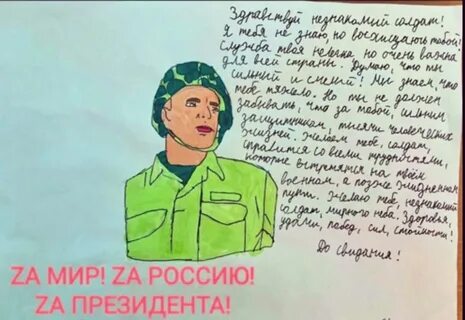 Здравствуй незнакомий солдат!
Я тебя не знаю, но восхищаюсь тобой!
Служба твоя нелегка, но очень важна
для всей страны. Думаю, что ты
сильный и смелый! Мы знаем, что
тебе тяжело. Но ты не должен
забывать, что за тобой, сильним
защитником, тысячи человеческих
жизней. Желаем тебе, солдат,
справится со всеми трудностями,
которые встретятся на твоём
военном, а позже жизненном
пути. Желаю тебе, незнакомий
солдат, мирного неба. Здоровья,
удачи, побед, сил, стойкости!
До свидания!
ZА МИР! ZА РОССИЮ!
ZА ПРЕЗИДЕНТА!